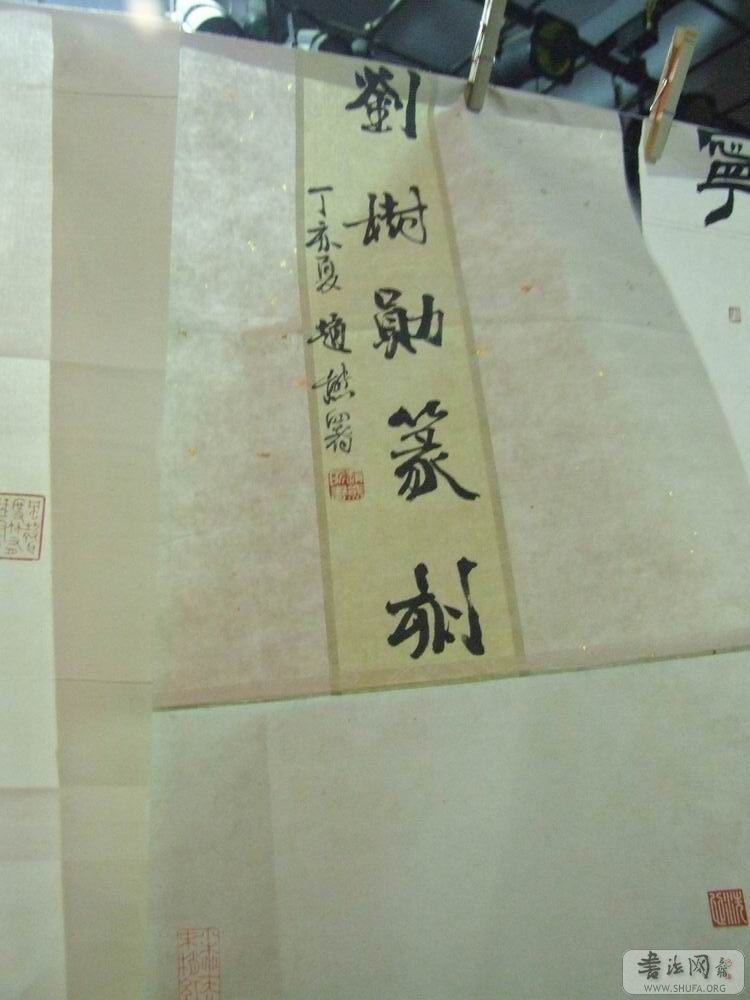 劉樹勛篆刻
丁亥夏 趙熊署
寧
書法网
WWW.SHUFA.ORG